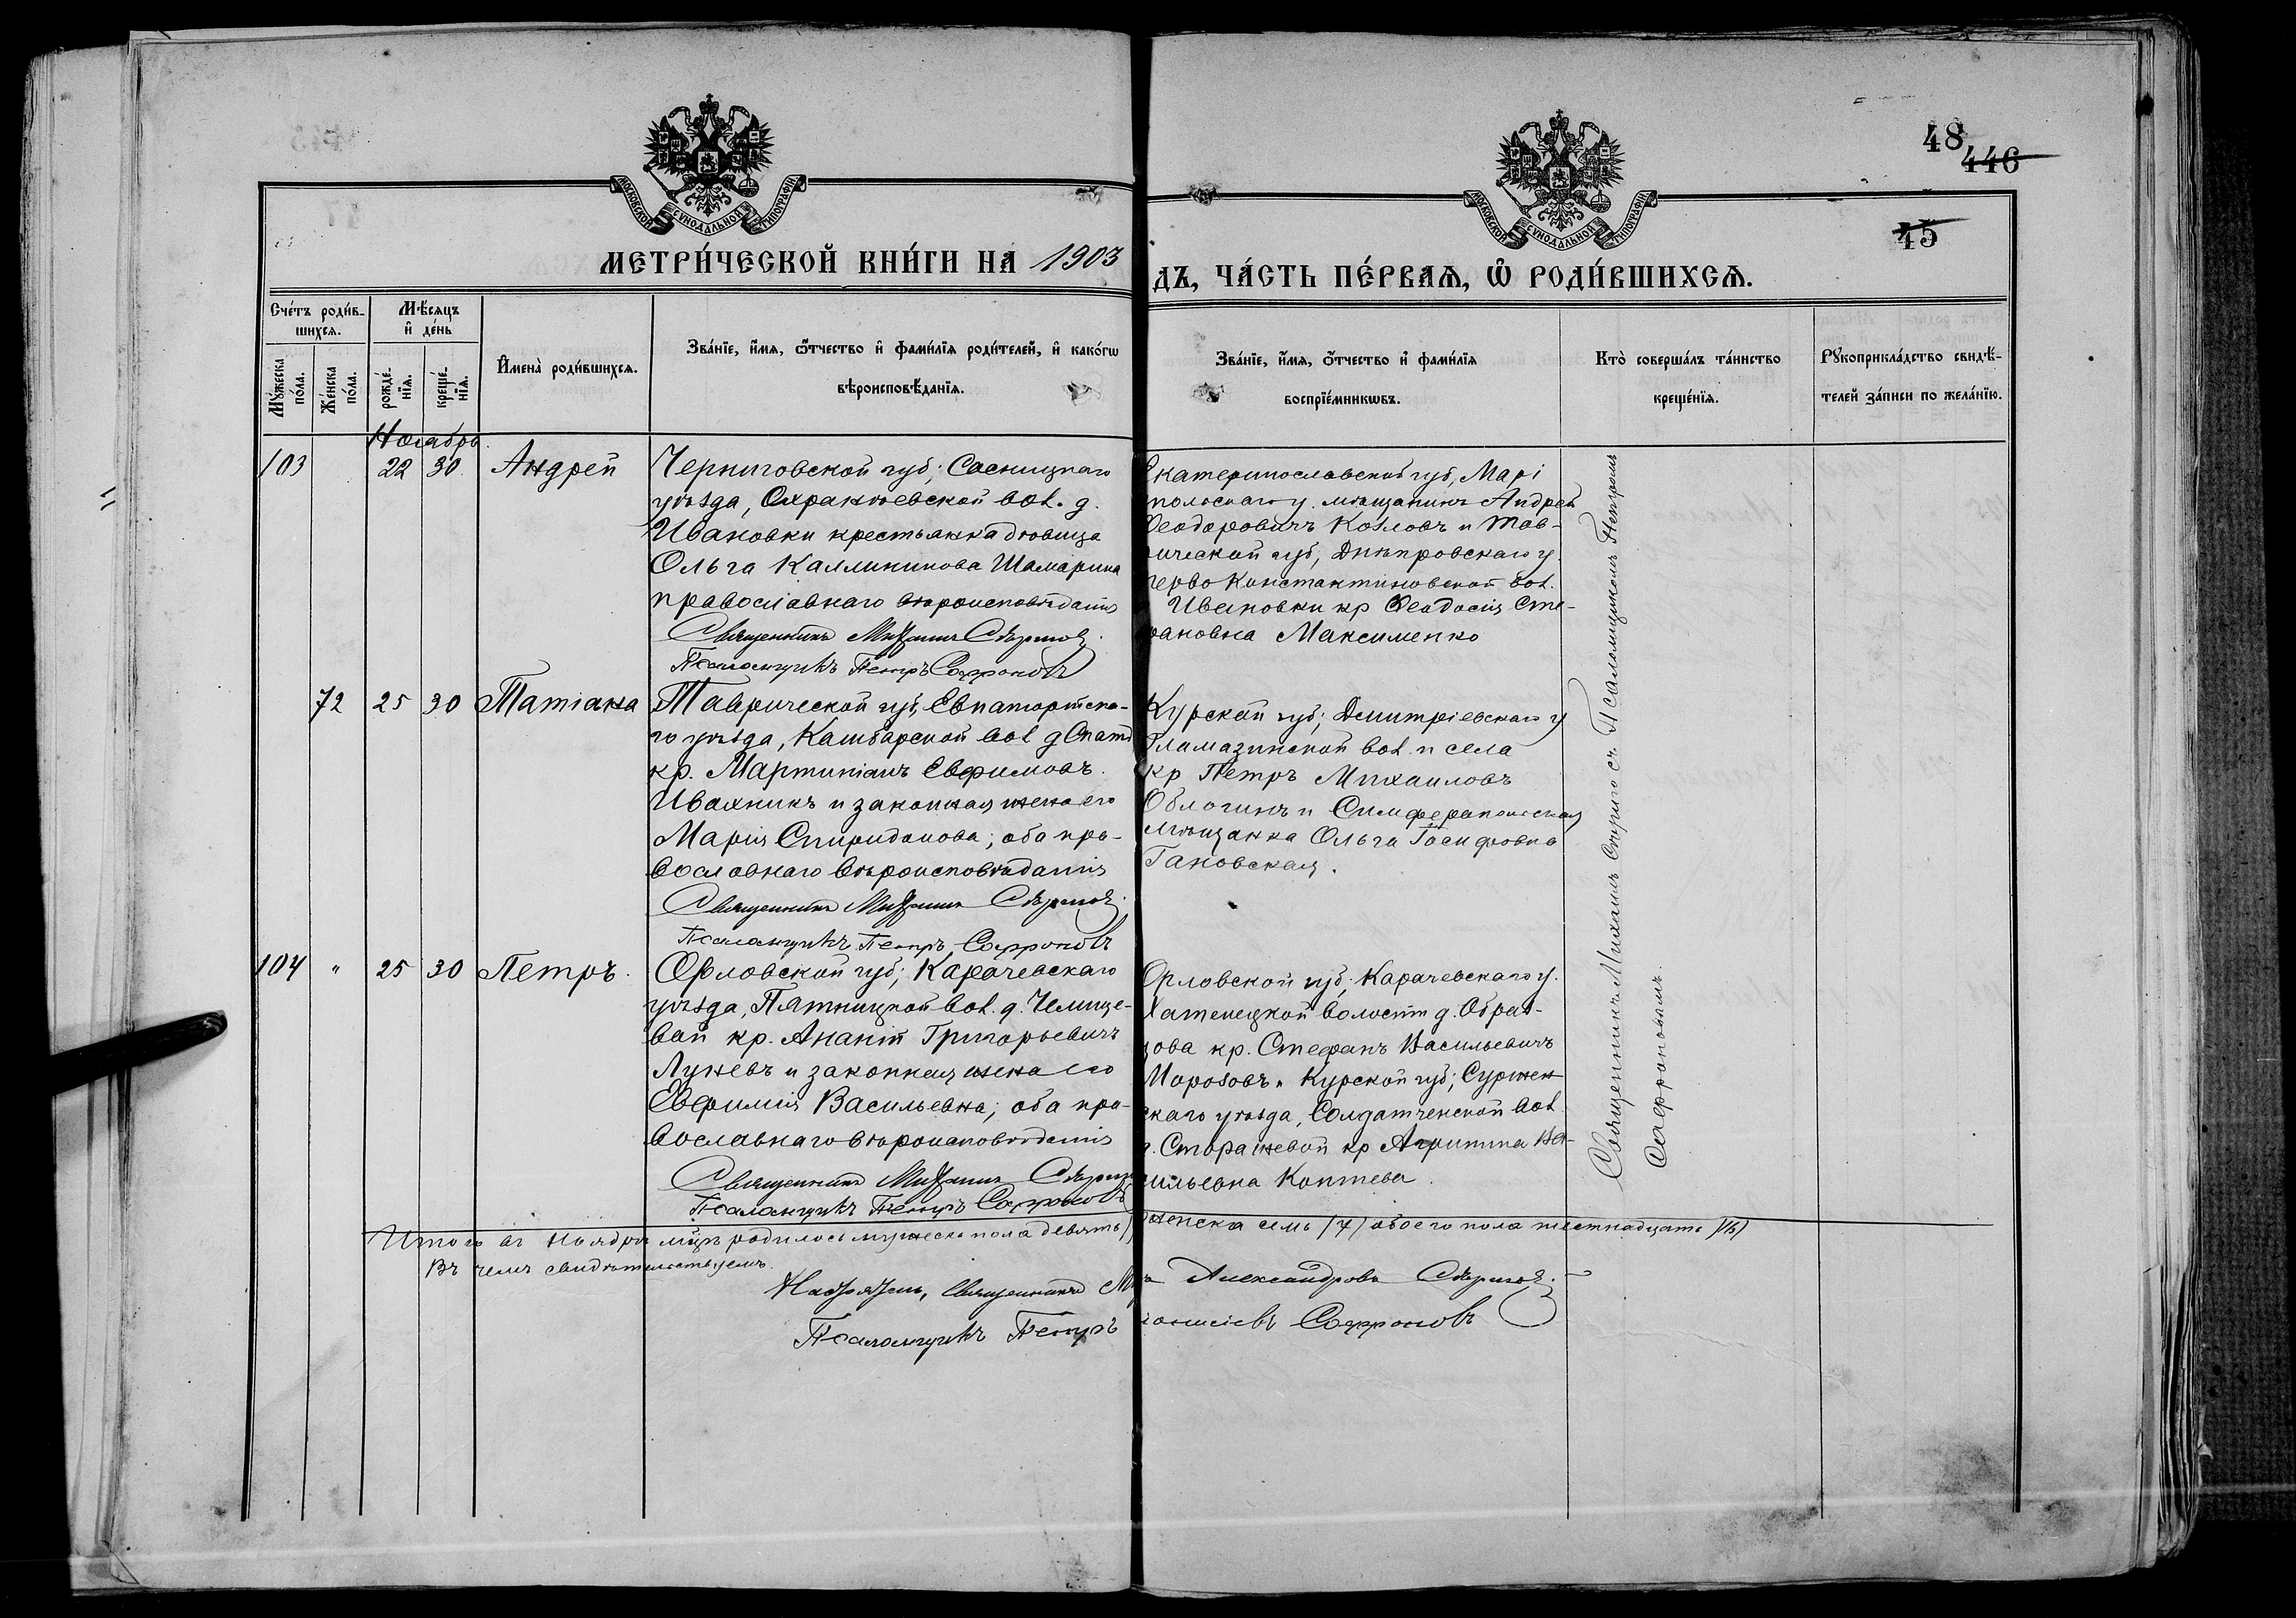 48
446
45
МОСКОВСКОЙ СѴНОДАЛЬНОЙ ТИПОГРАФІИ
МОСКОВСКОЙ СѴНОДАЛЬНОЙ ТИПОГРАФІИ
МЕТРИ́ЧЕСКОЙ КНИ́ГИ НА 1903
ДЪ, ЧА́СТЬ ПЕ́РВАѦ, Ѡ РОДИ́ВШИХСѦ.
Сче́тъ роди́в-
шихсѧ.
Мꙋ́жеска по́ла.
Же́нска по́ла.
Мѣ́сѧцъ
и҆ де́нь
рожде́-
нїѧ.
креще́-
нїѧ.
И҆мена̀ роди́вшихсѧ.
Зва́нїе, и҆́мѧ, ѻ҆́тчество и҆ фами́лїѧ роди́телей, и҆ како́гѡ
вѣроисповѣ́данїѧ.
Зва́нїе, и҆́мѧ, ѻ҆́тчество и҆ фами́лїѧ
воспрїе́мникѡвъ.
Кто̀ соверша́лъ та́инство
креще́нїѧ.
Рꙋкоприкла́дство свидѣ́-
телей за́писи по жела́нїю.
Ноябрь.
103 22 30 Андрей
Черниговской губ; Сосницкаго
уѣзда, вол. д.
Ивановки крестьянка дѣвица
Ольга Калликикова Шамарина
православнаго вѣроисповѣданія
Священникъ Михаилъ
Псаломщикъ Петръ Сафроновъ
Екатеринославской губ, Марі
польскаго у. мѣщанинъ Андрей
Ѳеодоровичъ Козловъ и Тав-
рической губ, Днѣпровскаго у.
Константиновской вол.
Ивановки кр Ѳеодосія Сте-
фановна Максименко
72 25 30 Татіана
Таврической губ, Евпаторійска-
го уѣзда, Камбарской вол д
кр. Мартиніанъ Евфимовъ
Ивахникъ и законная жена его
Марія Спиридонова; оба пра-
вославнаго вѣроисповѣданія
Священникъ Михаилъ
Псаломщикъ Петръ Сафроновъ
Курской губ; Дмитріевскаго у
вол. и села
кр Петръ Михаиловъ
и Симферопольская
мѣщанка Ольга Іосифовна
Гановская.
104 " 25 30 Петръ.
Орловской губ; Карачевскаго
уѣзда, Пятницкой вол. д. Челище-
вой кр. Ананій Григорьевичъ
Луневъ и законная жена его
Евфимія Васильевна; оба пра-
вославнаго вѣроисповѣданія
Священникъ Михаилъ
Псаломщикъ Петръ Сафроновъ
Орловской губ; Карачевскаго у.
волости д. Образ-
цова кр. Стефанъ Васильевичъ
Морозовъ и Курской губ;
скаго уѣзда, вол
Сторажевой кр Агрипина Ва-
сильевна Коптева.
Священникъ Михаилъ съ Псаломщикомъ Петромъ
Сафроновымъ.
Итого въ Ноябрѣ мцѣ родилось мужеска пола девять
женска семь (7) обоего пола шестнадцать (16)
Въ чемъ свидѣтельствуемъ.
Настоятель, Священникъ
Александровъ
Псаломщикъ Петръ
Сафроновъ